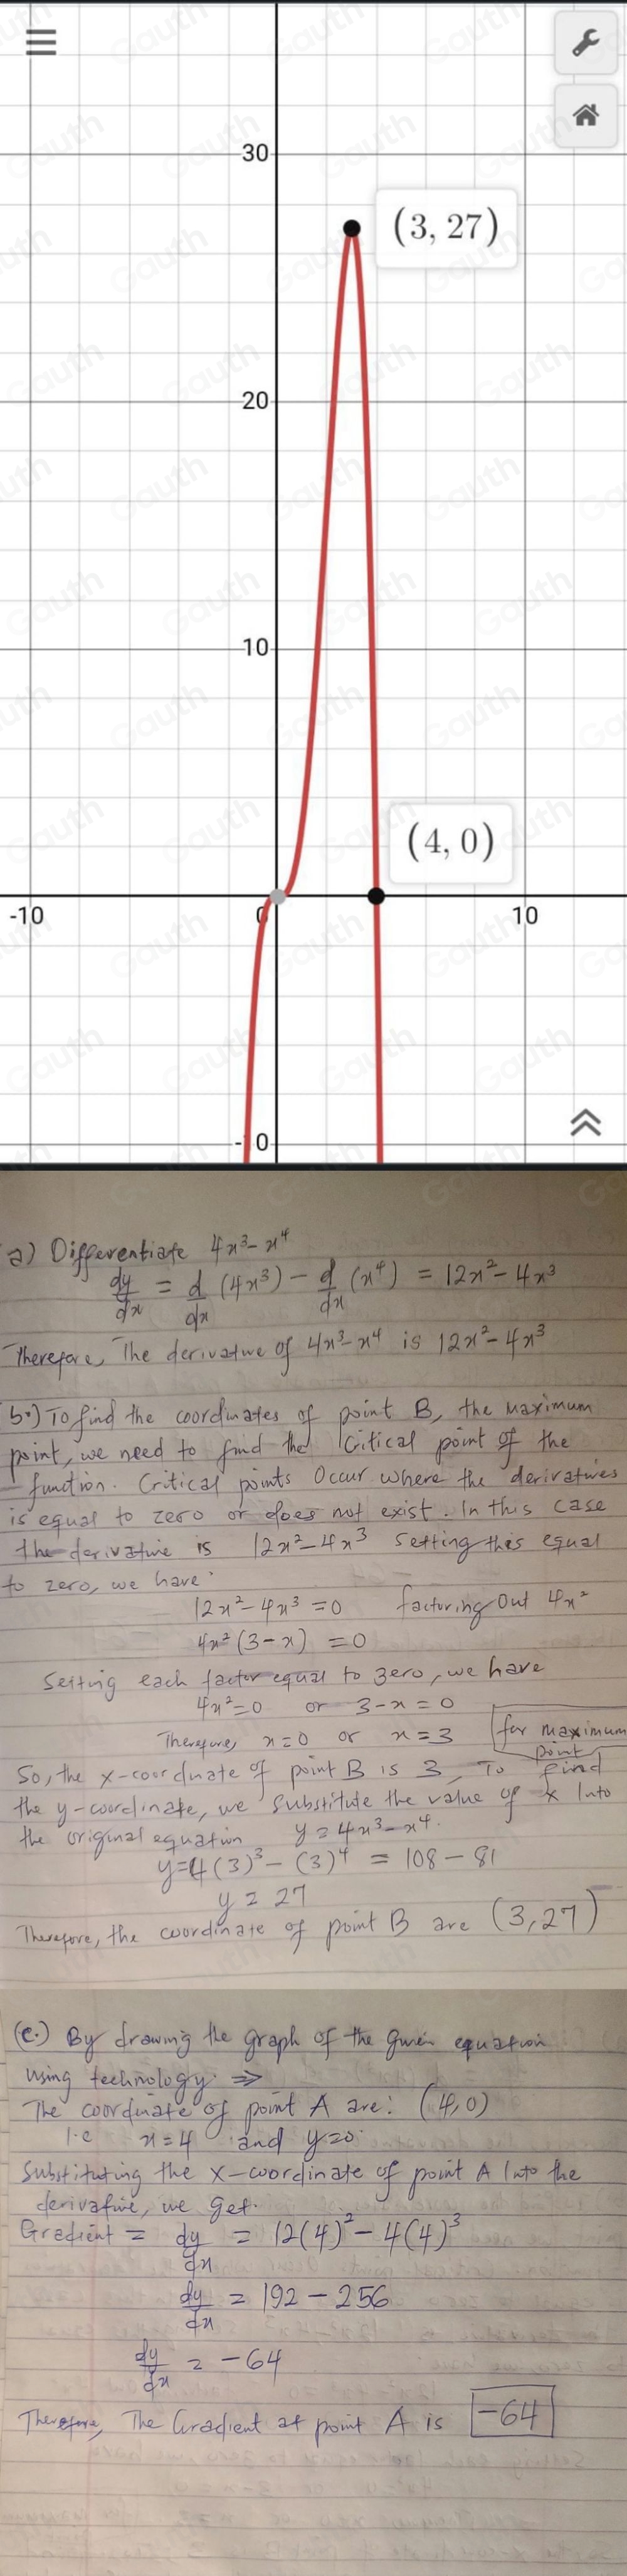 30
(3, 27)
20
10
(4, 0)
-10
0
10
-10
a) Differentiate 4x³-x⁴
dy/dx = d/dx (4x³) - d/dx (x⁴) = 12x²-4x³
Therefore, The derivative of 4x³-x⁴ is 12x²-4x³
b.) To find the coordinates of point B, the maximum
point, we need to find the Critical point of the
function. Critical points Occur where the derivatives
is equal to zero or does not exist. In this case
the derivative is 12x²-4x³ setting this equal
to zero, we have:
12x²-4x³ =0 factoring Out 4x²
4x²(3-x) =0
Setting each factor equal to zero, we have
4x²=0 or 3-x=0
Therefore, x=0 or x=3 for maximum point
So, the x-coordinate of point B is 3, To find
the y-coordinate, we substitute the value of x Into
the original equation y=4x³-x⁴.
y=4(3)³-(3)⁴ = 108-81
y=27
Therefore, the coordinate of point B are (3,27)
(c.) By drawing the graph of the given equation
using technology ⇒
The coordinate of point A are: (4,0)
i.e x=4 and y=0.
Substituting the x-coordinate of point A Into the
derivative, we get.
Gradient = dy/dx = 12(4)²-4(4)³
dy/dx = 192-256
dy/dx = -64
Therefore, The Gradient at point A is -64